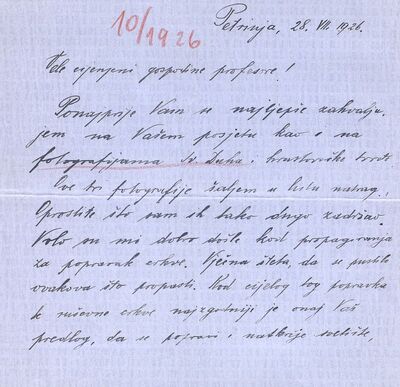 10/1926
Petrinja, 28. VII. 1926.
Vele cijenjeni gospodine profesore!
Ponajprije Vam se najljepše zahvalju-
jem na Vašem posjetu kao i na
fotografijama Sv. Duha i hrastovičke tvrđe.
Ove tri fotografije šaljem u listu natrag.
Oprostite što sam ih tako dugo zadržao.
Vrlo su mi dobro došle kod propagiranja
za popravak crkve. Vječna šteta, da se pusti
ovakova što propasti. Kod cijelog tog popravka
te ruševne crkve najzgodniji je onaj Vaš
predlog, da se popravi i natkrije svetište,